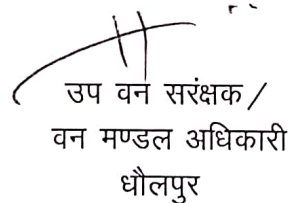 उप वन सरंक्षक /
वन मण्डल अधिकारी
धौलपुर